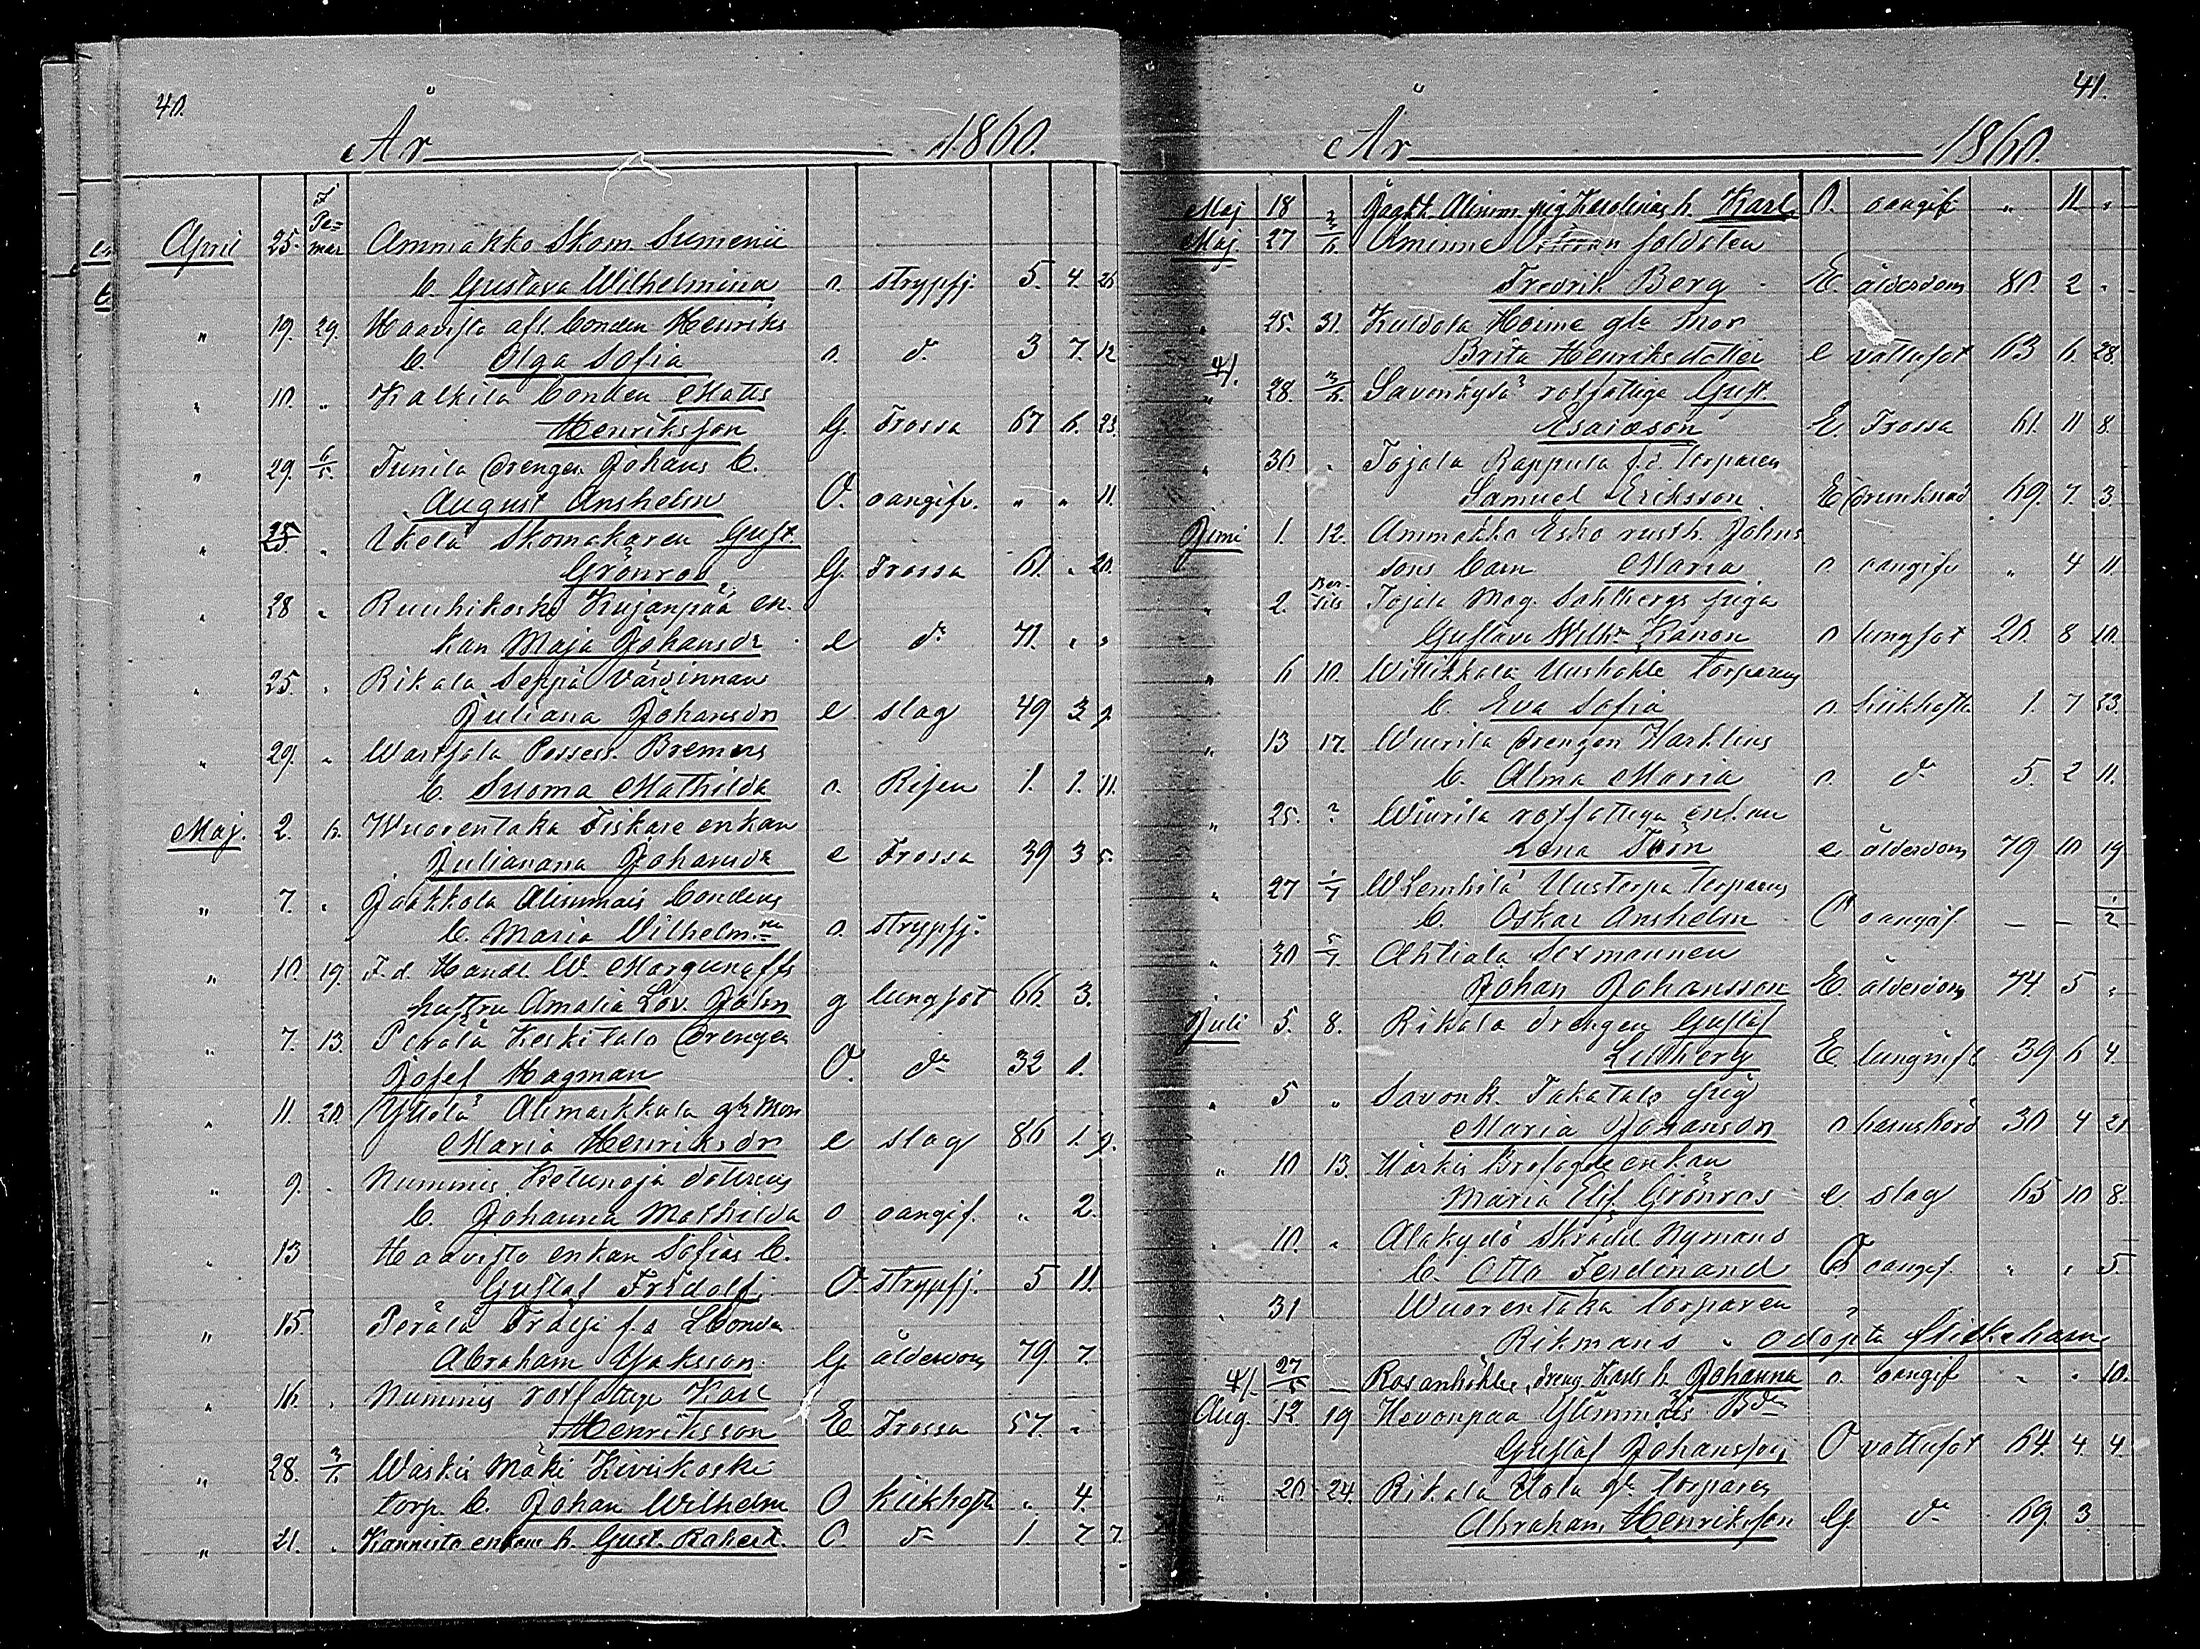 40.
År 1860.
April 25. I Pemar Ammakko Skom. Sumenii
b. Gustava Wilhelmina o. strypsj. 5. 4. 25
" 19. 29. Haavisto afl. bonden Henriks
b. Olga Sofia o. do 3 7. 12
" 10. " Kalkila bonden Matts
Henriksson G. Frossa 67 6. 23.
" 29. 6/5. Tunila drengen Johans b.
August Anshelm O. oangifv. " " 11.
" 25 " Ikelä Skomakaren Gust.
Grönros G. Frossa 61. " 20.
" 28 " Ruuhikoski Kujanpää en-
kan Maja Johansdr e do 71. " "
" 25. " Rikala Seppä värdinnan
Juliana Johansdr e slag 49 3 9.
" 29. " Wartsala Possess. Bremers
b. Suoma Mathilda o. Risen 1. 1. 11.
Maj. 2. 6. Wuorentaka Fiskare enkan
Julianana Johansdr e Frossa 39 3 5.
" 7. " Jaakkola Alimmais bondens
b. Maria Vilhelm.na o. strypsj.
" 10. 19. F.d. Handl. W. Margunoffs
hustru Amalia Lov. Jahn g lungsot 66. 3.
" 7. 13. Perälä Keskitalo drengen
Josef Hagman O. do 32 1.
" 11. 20. Yttelä Alimarkkula gla Mor
Maria Henriksdr e slag 86 1. 9.
" 9. " Nummis Ketunoja dotters
b. Johanna Mathilda o oangif. " 2.
" 13 Haavisto enkan Sofias b.
Gustaf Fridolf. O. strypsj. 5 11.
" 15. Perälä Fräljä f.d. bonden
Abraham Jaksson G ålderdom 79. 7.
" 16. " Nummis rotfattige Karl
Henriksson E Frossa 57. "
" 28. 3/6. Waskis Mäki Kiviikoski
torp. b. Johan Wilhelm O kikhosta " 4.
" 21. " Kannisto enkans b. Gust. Robert. O. do 1. 7 7.
41.
År 1860.
Maj 18 Jaakk. Alimm. pig Karolinas b. Karl O. oangif " 11 "
Maj 27 3/6. Aminne Veteran soldaten
Fredrik Berg E ålderdom 80. 2 "
" 25. 31. Kuldola Heime gla Mor
Brita Henriksdotter e vattusot 63 6 28.
" 28. 3/6. Savonkylä rotfattige Gust.
Esaiason E. Frossa 61. 11 8.
" 30. " Tojala Rappula f.d. torparen
Samuel Eriksson E drunknad 69. 7. 3.
Juni 1. 12. Ammakko Esko rusth. Johns
sons barn Maria o oangifv " 4 11.
" 2. Tojala Mag. Sahlbergs piga
Gustava Wilh. Kanon o lungsot 20. 8 10.
" 6 10. Willikkala Uushakla torparens
b. Eva Sofia o. kikhosta 1. 7 23.
" 13 17. Wiurila drengen Harklins
b. Alma Maria o. do 5. 2 11.
" 25. ? Wiurila rotfattiga enkan
Lena Törn e ålderdom 79 10 19
" 27 1/7 W Lemhilä Uustorpa torparens
b. Oskar Anshelm O oangif — — 1/2
" 30 5/7. Ahtiala Sexmannen
Johan Johansson E. ålderdom 74. 5 "
Juli 5. 8. Rikala drengen Gustaf
Lithberg E. lunginfl. 39 6 4.
" 5 " Savonk. Takatalo pig
Maria Johansdr o barnsbörd 30 4 21
" 10 13. Härkis enkan
Maria Elis. Grönros e. slag 65 10 8.
" 10. " Alakylä skrädd. Nymans
b. Otto Ferdinand O. oangif. " " 5.
" 31 Wuorentaka torparen
Rikmans " odöpta flickebarn
27/5 — Rosanhökle, dreng Karls b. Johanna o. oangif " " 10.
Aug. 12 19 Hevonpää Ylimmäis Bdn
Gustaf Johansson O vattusot 64. 4. 4.
" 20. 24. Rikala Uola gle torparen
Abraham Henriksson G. do 69. 3.